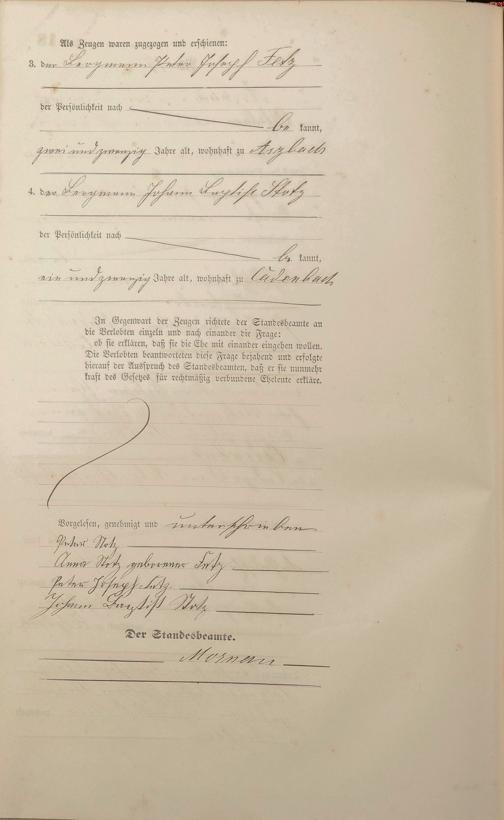 Als Zeugen waren zugezogen und erschienen:
3. der Bergmann Peter Joseph Fetz
der Persönlichkeit nach
be kannt,
zwei und zwanzig Jahre alt, wohnhaft zu Aszbach
4. der Bergmann Johann Baptist Stotz
der Persönlichkeit nach
be kannt,
ein und zwanzig Jahre alt, wohnhaft zu
In Gegenwart der Zeugen richtete der Standesbeamte an
die Verlobten einzeln und nach einander die Frage:
ob sie erklären, daß sie die Ehe mit einander eingehen wollen.
Die Verlobten beantworteten diese Frage bejahend und erfolgte
hierauf der Ausspruch des Standesbeamten, daß er sie nunmehr
kraft des Gesetzes für rechtmäßig verbundene Eheleute erkläre.
Vorgelesen, genehmigt und unterschrieben
Peter Stotz
Anna Stotz geborene Fetz
Peter Joseph Fetz
Johann Baptist Stotz
Der Standesbeamte.